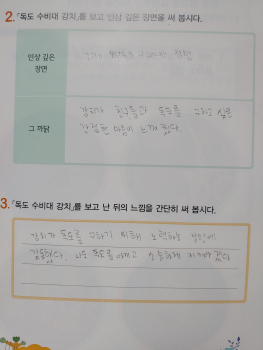 2. 『독도 수비대 강치』를 보고 인상 깊은 장면을 써 봅시다.
인상 깊은
장면
장면
그 까닭
강치가 친구들과 독도를 지키고 싶은
간절한 마음이 느껴졌다.
3. 『독도 수비대 강치』를 보고 난 뒤의 느낌을 간단히 써 봅시다.
강치가 독도를 구하기 위해 노력하는 장면에
감동했다. 나도 독도를 아끼고 소중하게 지켜야겠다